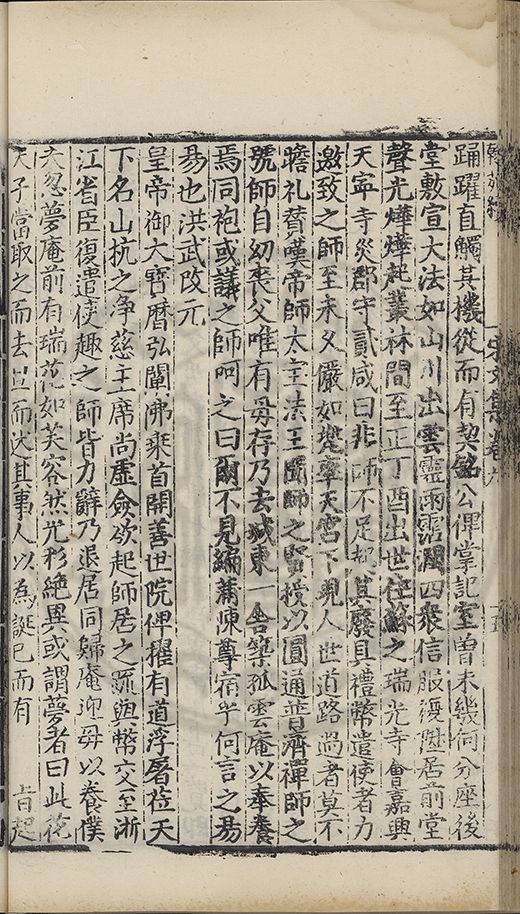 踊躍直觸其機從而有契銘公俾掌記室曾未幾何分座後
堂敷宣大法如山川出雲靈雨霑潤四衆信服復遷居前堂
聲光燁燁起叢林間至正丁酉出世住蘇之瑞光寺會嘉興
天寧寺災郡守貳咸曰非師不足起其廢具禮幣遣使者力
邀致之師至未久儼如兜率天宮下現人世道路過者莫不
瞻礼替嘆帝師大宝法王聞師之賢授以圓通普濟禪師之
號師自幼喪父唯有母存乃去城東一舍築孤雲庵以奉養
焉同袍或議之師呵之曰爾不見編蒲陳尊宿乎何言之易
易也洪武改元
皇帝御大寶曆弘闡佛乘首開善世院俾擢有道浮屠莅天
下名山杭之净慈主席尚虛僉欲起師居之疏與幣交至浙
江省臣復遣使趣之師皆力辭乃退居同歸庵迎母以養僕
夫忽夢庵前有瑞花如芙容狀光彩絶異或謂夢者曰此花
天子當取之而去旦而述其事人以為誕已而有 旨起
翰苑續 宋文集卷六